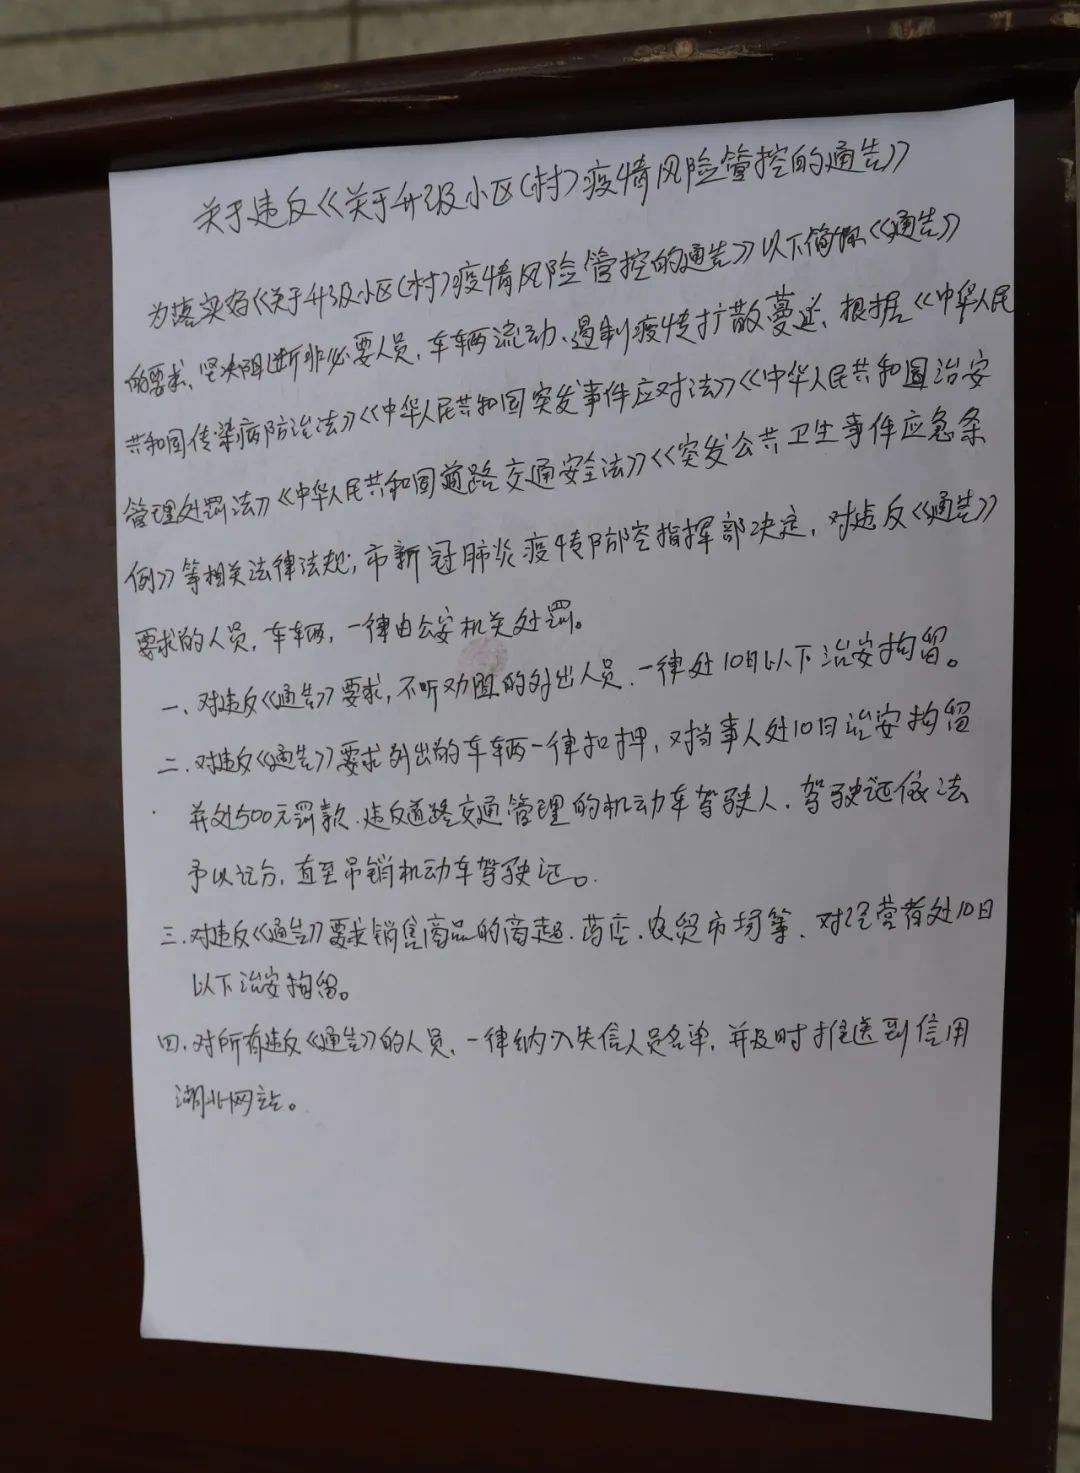 关于违反《关于升级小区(村)疫情风险管控的通告》
为落实好《关于升级小区(村)疫情风险管控的通告》以下简称《通告》
的要求,坚决阻断非必要人员、车辆流动、遏制疫情扩散蔓延、根据《中华人民
共和国传染病防治法》《中华人民共和国突发事件应对法》《中华人民共和国治安
管理处罚法》《中华人民共和国道路交通安全法》《突发公共卫生事件应急条
例》等相关法律法规,市新冠肺炎疫情防控指挥部决定,对违反《通告》
要求的人员,车辆,一律由公安机关处罚。
一、对违反《通告》要求,不听劝阻的外出人员,一律处10日以下治安拘留。
二、对违反《通告》要求外出的车辆一律扣押,对当事人处10日治安拘留
并处500元罚款.违反道路交通管理的机动车驾驶人.驾驶证依法
予以记分,直至吊销机动车驾驶证。
三.对违反《通告》要求销售商品的商超.药店.农贸市场等、对经营者处10日
以下治安拘留。
四.对所有违反《通告》的人员、一律纳入失信人员名单,并及时推送到信用
湖北网站。